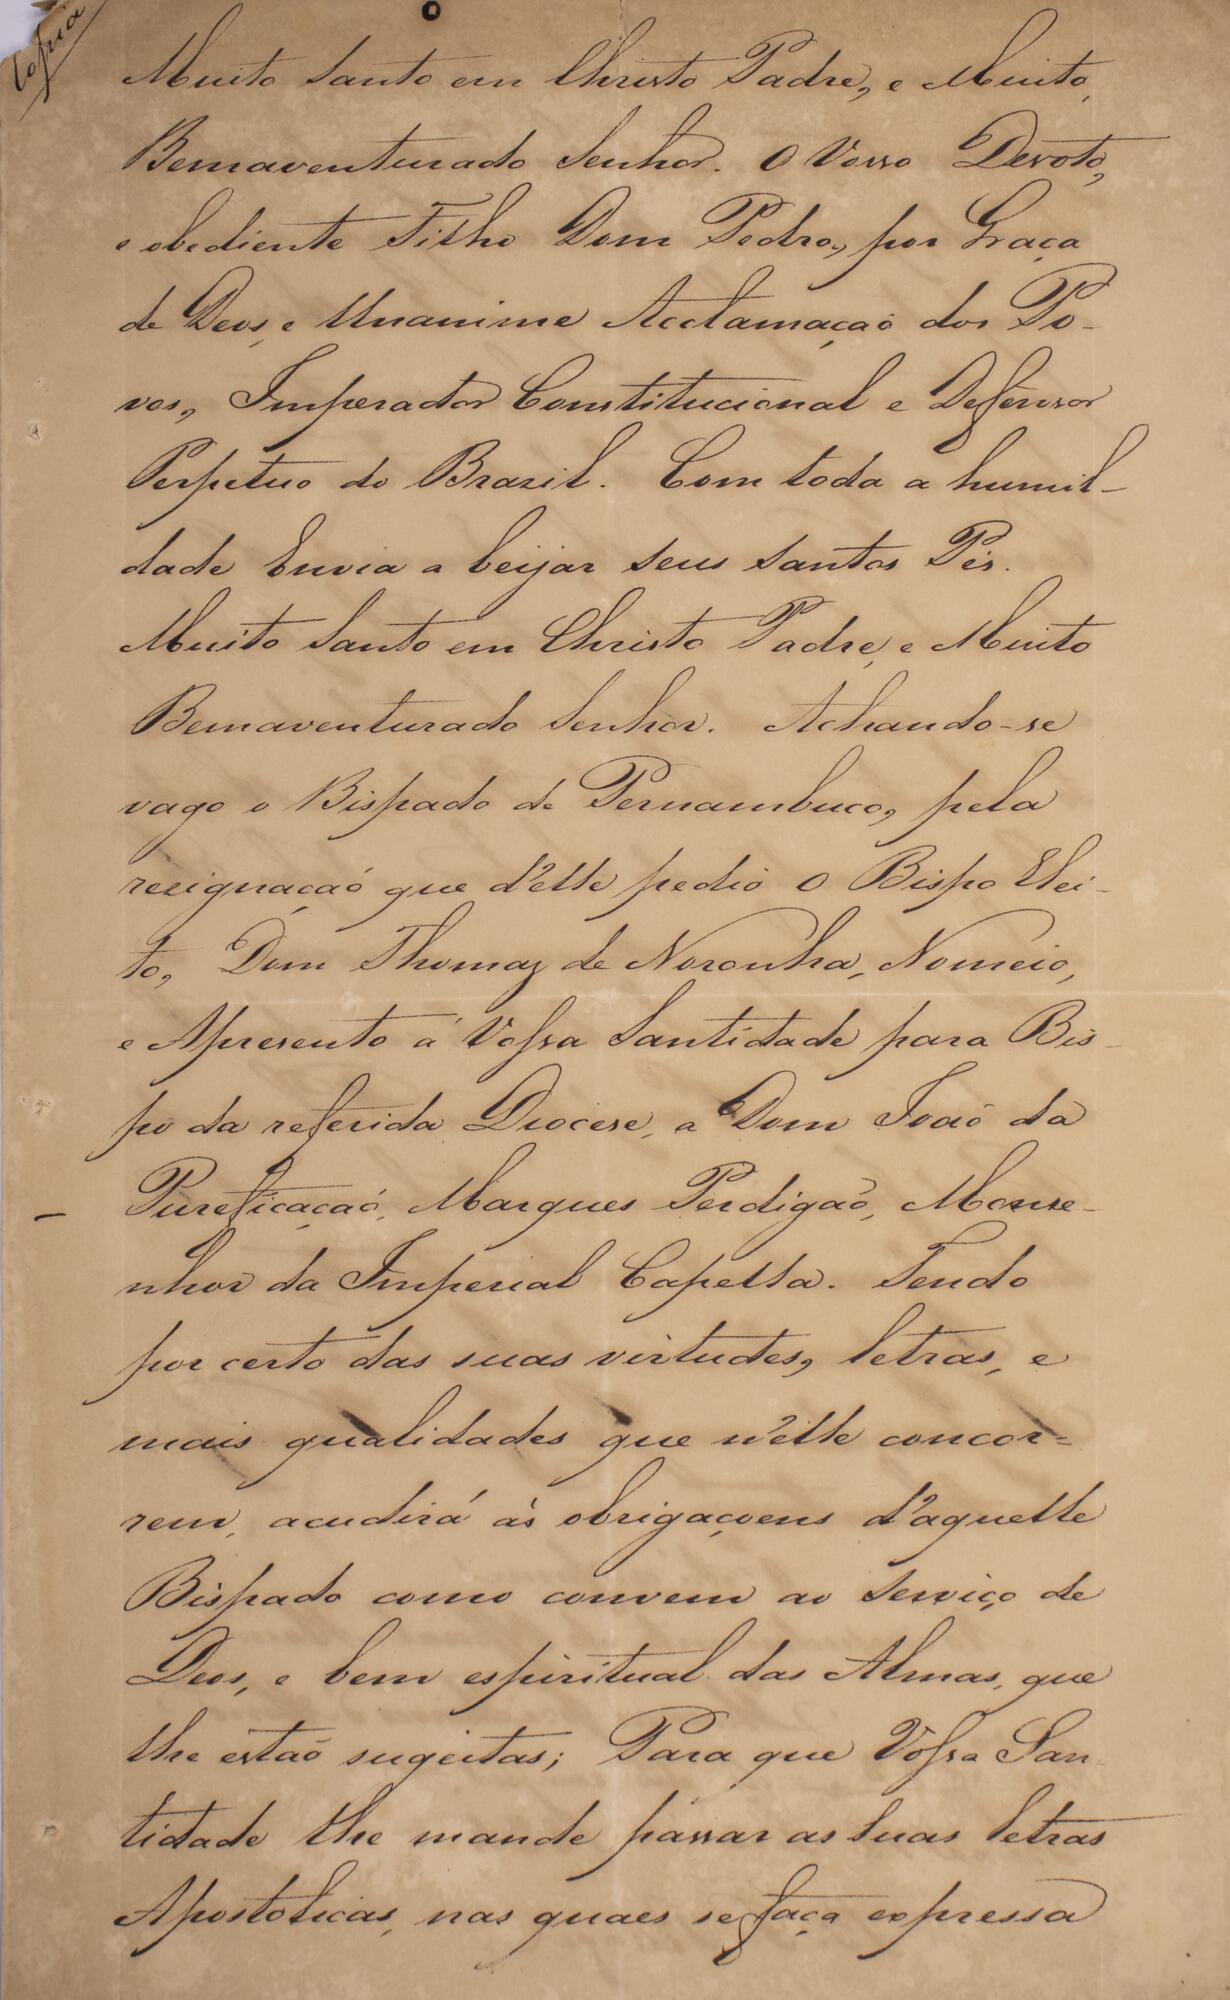 Copia
Muito Santo em Christo Padre, e Muito
Bemaventurado Senhor. O Vosso Devoto,
e obediente Filho Dom Pedro, por Graça
de Deos, e Unanime Acclamação dos Po-
vos, Imperador Constitucional e Defensor
Perpetuo do Brazil. Com toda a humil-
dade Envia a beijar seus Santos Pés.
Muito Santo em Christo Padre, e Muito
Bemaventurado Senhor. Achando-se
vago o Bispado de Pernambuco, pela
resignação que d'elle pedio o Bispo Elei-
to, Dom Thomaz de Noronha, Nomeio,
e Apresento á Vossa Santidade para Bis-
po da referida Diocese, a Dom João da
Purificação, Marques Perdigão, Monse-
nhor da Imperial Capella. Tendo
por certo das suas virtudes, letras, e
mais qualidades que n'elle concor-
rem, acudirá ás obrigaçoens d'aquelle
Bispado como convem ao Serviço de
Deos, e bem espiritual das Almas, que
lhe estão sugeitas; Para que Vossa San-
tidade lhe mande passar as Suas letras
Apostolicas, nas quaes se faça expressa